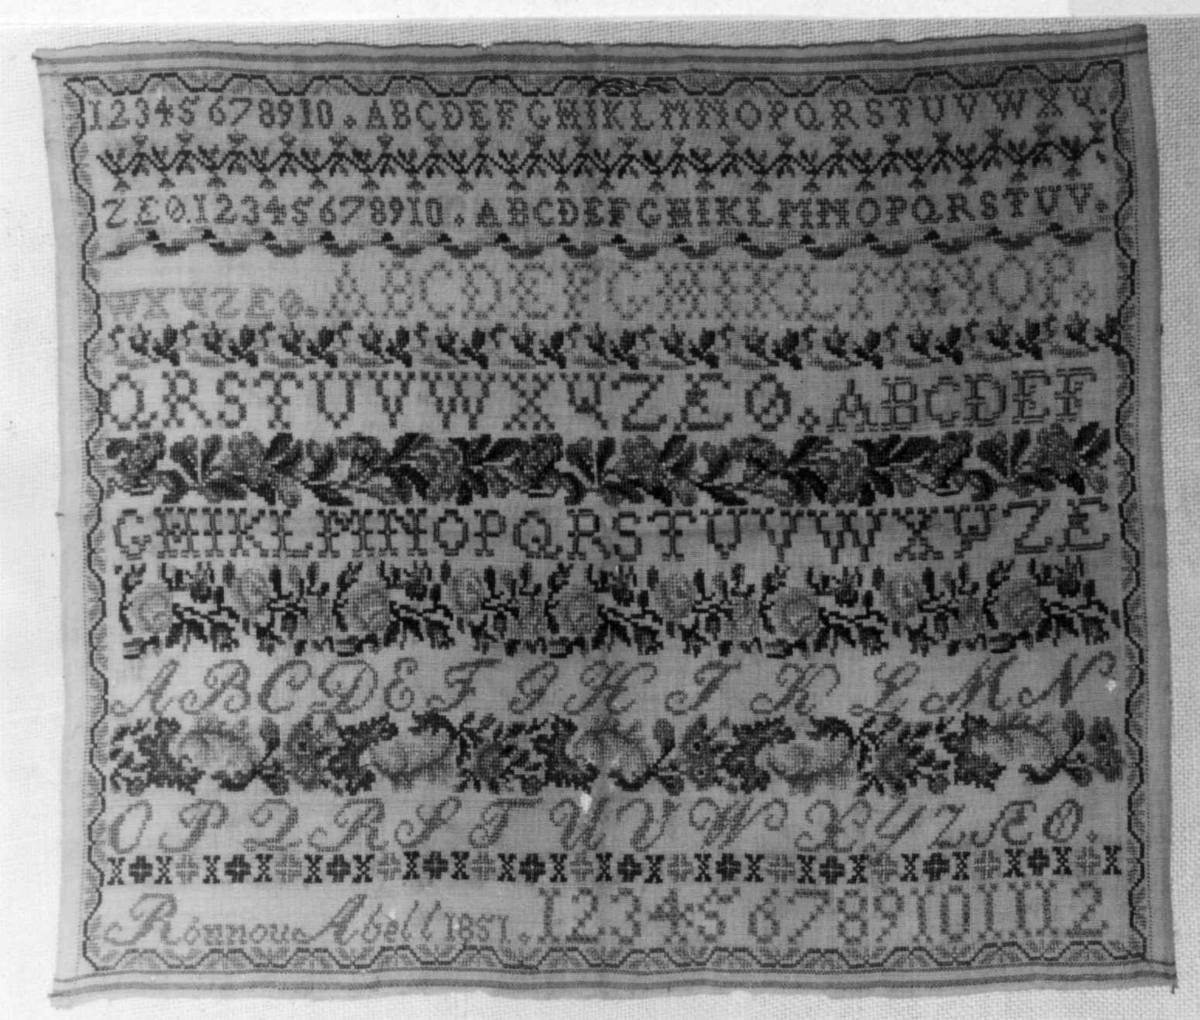 12345678910. ABCDEFGHIKLMNOPQRSTUVWXY.
ZÆØ.12345678910. ABCDEFGHIKLMNOPQRSTUV.
WXYZÆØ. ABCDEFGHIKLMNOP.
QRSTUVWXYZÆØ. ABCDEF
GHIKLMNOPQRSTUVWXYZÆ
ABCDEFGHIKLMN
OPQRSTUVWXYZÆØ.
Rónnou Abell 1851. 123456789101112